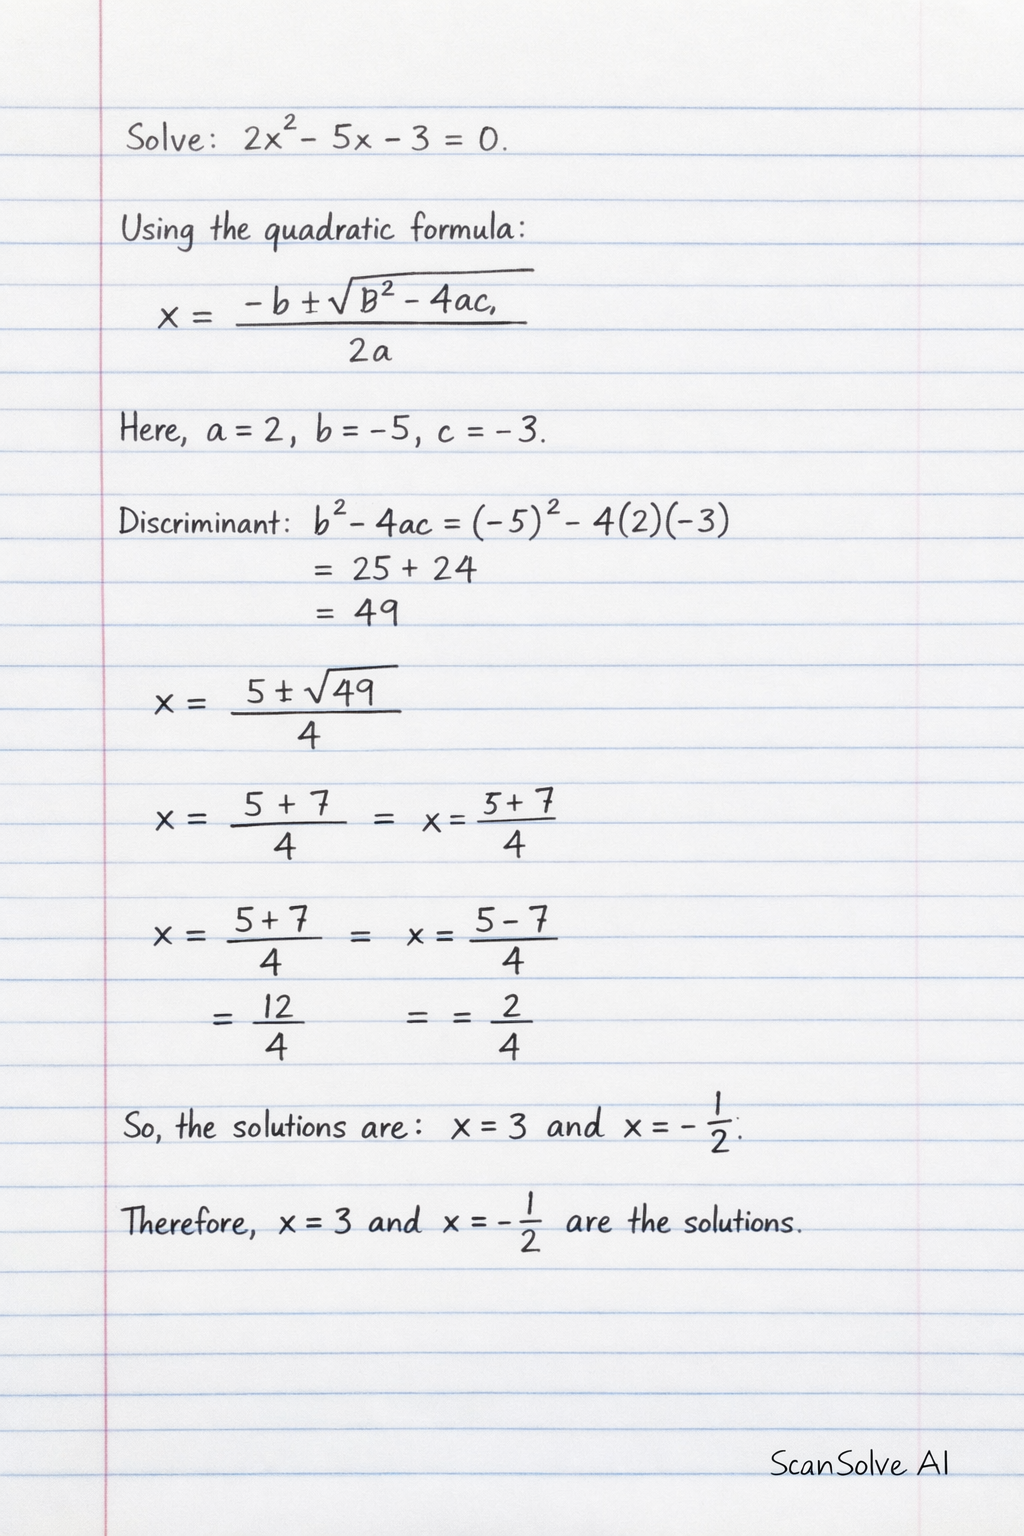 Solve: 2x² - 5x - 3 = 0.
Using the quadratic formula:
x = (-b ± √(B² - 4ac,)) / 2a
Here, a = 2, b = -5, c = -3.
Discriminant: b² - 4ac = (-5)² - 4(2)(-3)
= 25 + 24
= 49
x = (5 ± √49) / 4
x = (5 + 7) / 4 = x = (5 + 7) / 4
x = (5 + 7) / 4 = x = (5 - 7) / 4
= 12 / 4 = = 2 / 4
So, the solutions are: x = 3 and x = - 1/2.
Therefore, x = 3 and x = - 1/2 are the solutions.
ScanSolve AI